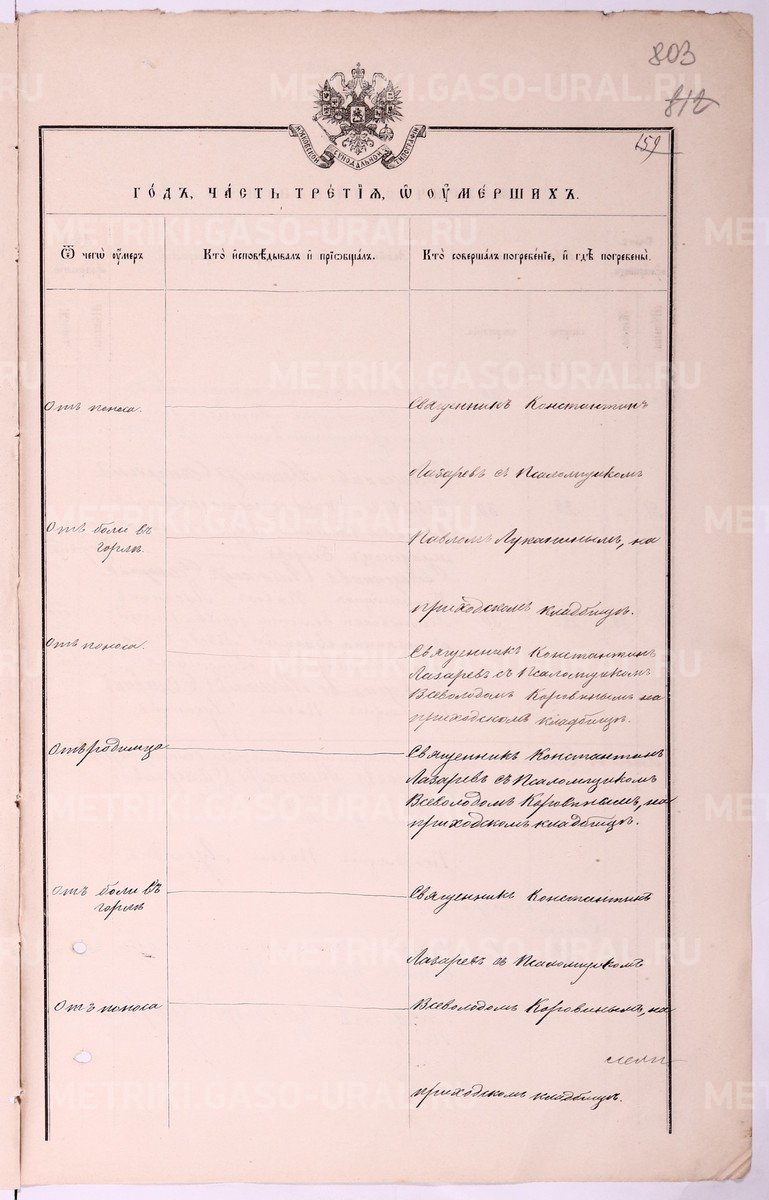 803
812
159
МОСКОВСКОЙ СѴНОДАЛЬНОЙ ТИПОГРАФІИ
ГО́ДЪ, ЧА́СТЬ ТРЕ́ТІѦ, Ѡ҆ ОУ҆МЕ́РШИХЪ.
Ѿ чегѡ̀ оу҆́меръ
Кто̀ и҆сповѣ́дывалъ и҆ прїѡбща́лъ.
Кто̀ соверша́лъ погребе́нїе, и҆ гдѣ̀ погребены̀.
Отъ поноса.
Священникъ Константинъ
Лазаревъ съ Псаломщикомъ
Отъ боли въ
горлѣ.
Павломъ Луканинымъ, на
приходскомъ кладбищѣ.
Отъ поноса.
Священникъ Константинъ
Лазаревъ съ Псаломщикомъ
Всеволодомъ Коровинымъ на
приходскомъ кладбищѣ.
Отъ родимца
Священникъ Константинъ
Лазаревъ съ Псаломщикомъ
Всеволодомъ Коровинымъ, на
приходскомъ кладбищѣ.
Отъ боли въ
горлѣ
Священникъ Константинъ
Лазаревъ съ Псаломщикомъ
Отъ поноса
Всеволодомъ Коровинымъ, на
приходскомъ кладбищѣ.
METRIKI.GASO-URAL.RU